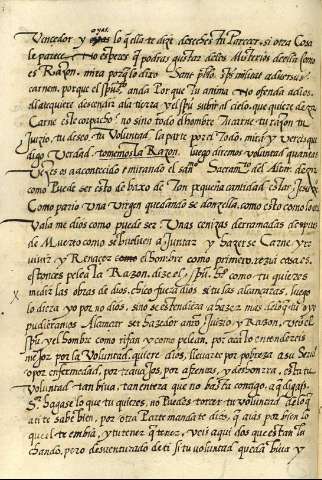 oyas
Vencedor y lo q̃ ella te dize derechos tu Parecer, si otra Cosa
le parece No esperes q̃ podras gustar destos Misterios dexilla
es Razon, mira porq̃ lo dixo Sant pablo
carnem, porque el spũ anda Por que tu anima No ofenda a dios,
descendir a la tierra y el spũ subir al cielo, que quiere dezir
Carne este corpacho no sino todo el hombre Encarne tu razon tu
Juizio, tu deseo, tu Voluntad, la parte por el Todo, mira y vereis que
digo Verdad. tomemos la Razon, luego diremos voluntad quantas
Vezes os a acontecido mirando el san.º Sacram.to del Altar, dezir
como Puede ser esto de baxo de Tan pequeña cantidad estar Jesu
Como pario Una virgen quedando se donzella, como esto como lo otro
Vala me dios como puede ser Unas cenizas derramadas despues
de Muerto como se buelven a Juntar y hazer se Carne y re
vivir y Renacer el hombre como primero, veis a cosas,
estonces pelea la Razon, dize el spũ. como tu quieres
medir las obras de dios, chico fuera dios si tu las alcançaras, luego
lo diera yo por no dios, sino se estendiera a hazer mas de lo q̃ tu y yo
pudieramos Alcançar ser hazedor año Juizio y Razon, veis el
spũ y el hombre como riñan y como pelean, por aca lo entendereis
mejor por la Voluntad, quiere dios, llevarte por pobreza a su
o por enfermedad, por trabajos, por afrentas, y deshonrra, esta tu
Voluntad tan biva, tan entera que no basta contigo, a q̃ digas,
S.r hagase lo que tu quieres, no Puedes torcer tu voluntad de lo q̃
a ti te sabe bien, por otra Parte manda te dios, q̃ ayas por bien lo
que el te embia, y tu tener q̃ tener, veis aqui dos que estan lu
chando, pero desventurado de ti si tu voluntad queda biva y